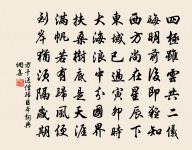 四極雖雲共二儀
晦明前後即難知
西方尚在星辰下
東域已過寅卯時
大海浪中分國界
扶桑樹底是天涯
滿帆若有歸風便
到岸猶須隔歲期
方干送僧歸日本